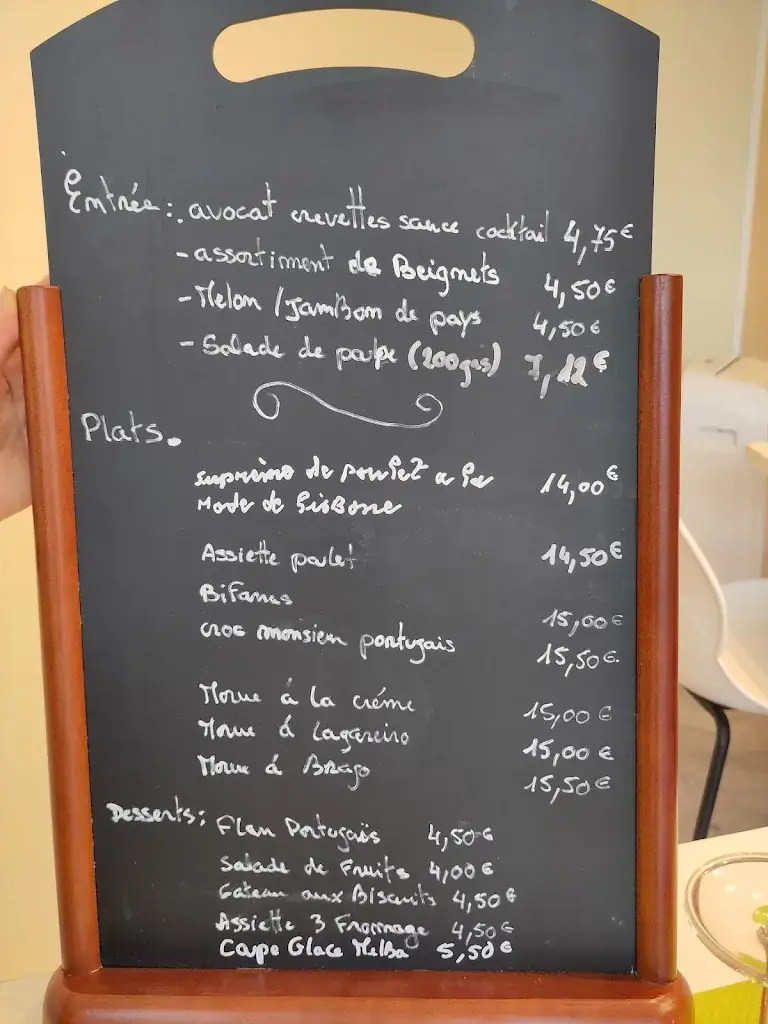 Entrée: . avocat crevettes sauce cocktail 4,75€
- assortiment de Beignets 4,50€
- Melon / JamBom de pays 4,50€
- Salade de poulpe (200grs) 7,12€
Plats.
suprême de poulet a la 14,00€
Mode de LisBonne
Assiette poulet 14,50€
BiFanas 15,00€
croc monsieu portugais 15,50€
Morue á la créme 15,00€
Morue á Lagareiro 15,00€
Morue á Brago 15,50€
Desserts: Flan Portugais 4,50€
Salade de Fruits 4,00€
Gateau aux Biscuits 4,50€
Assiette 3 Frommage 4,50€
Coupe Glace Melba 5,50€